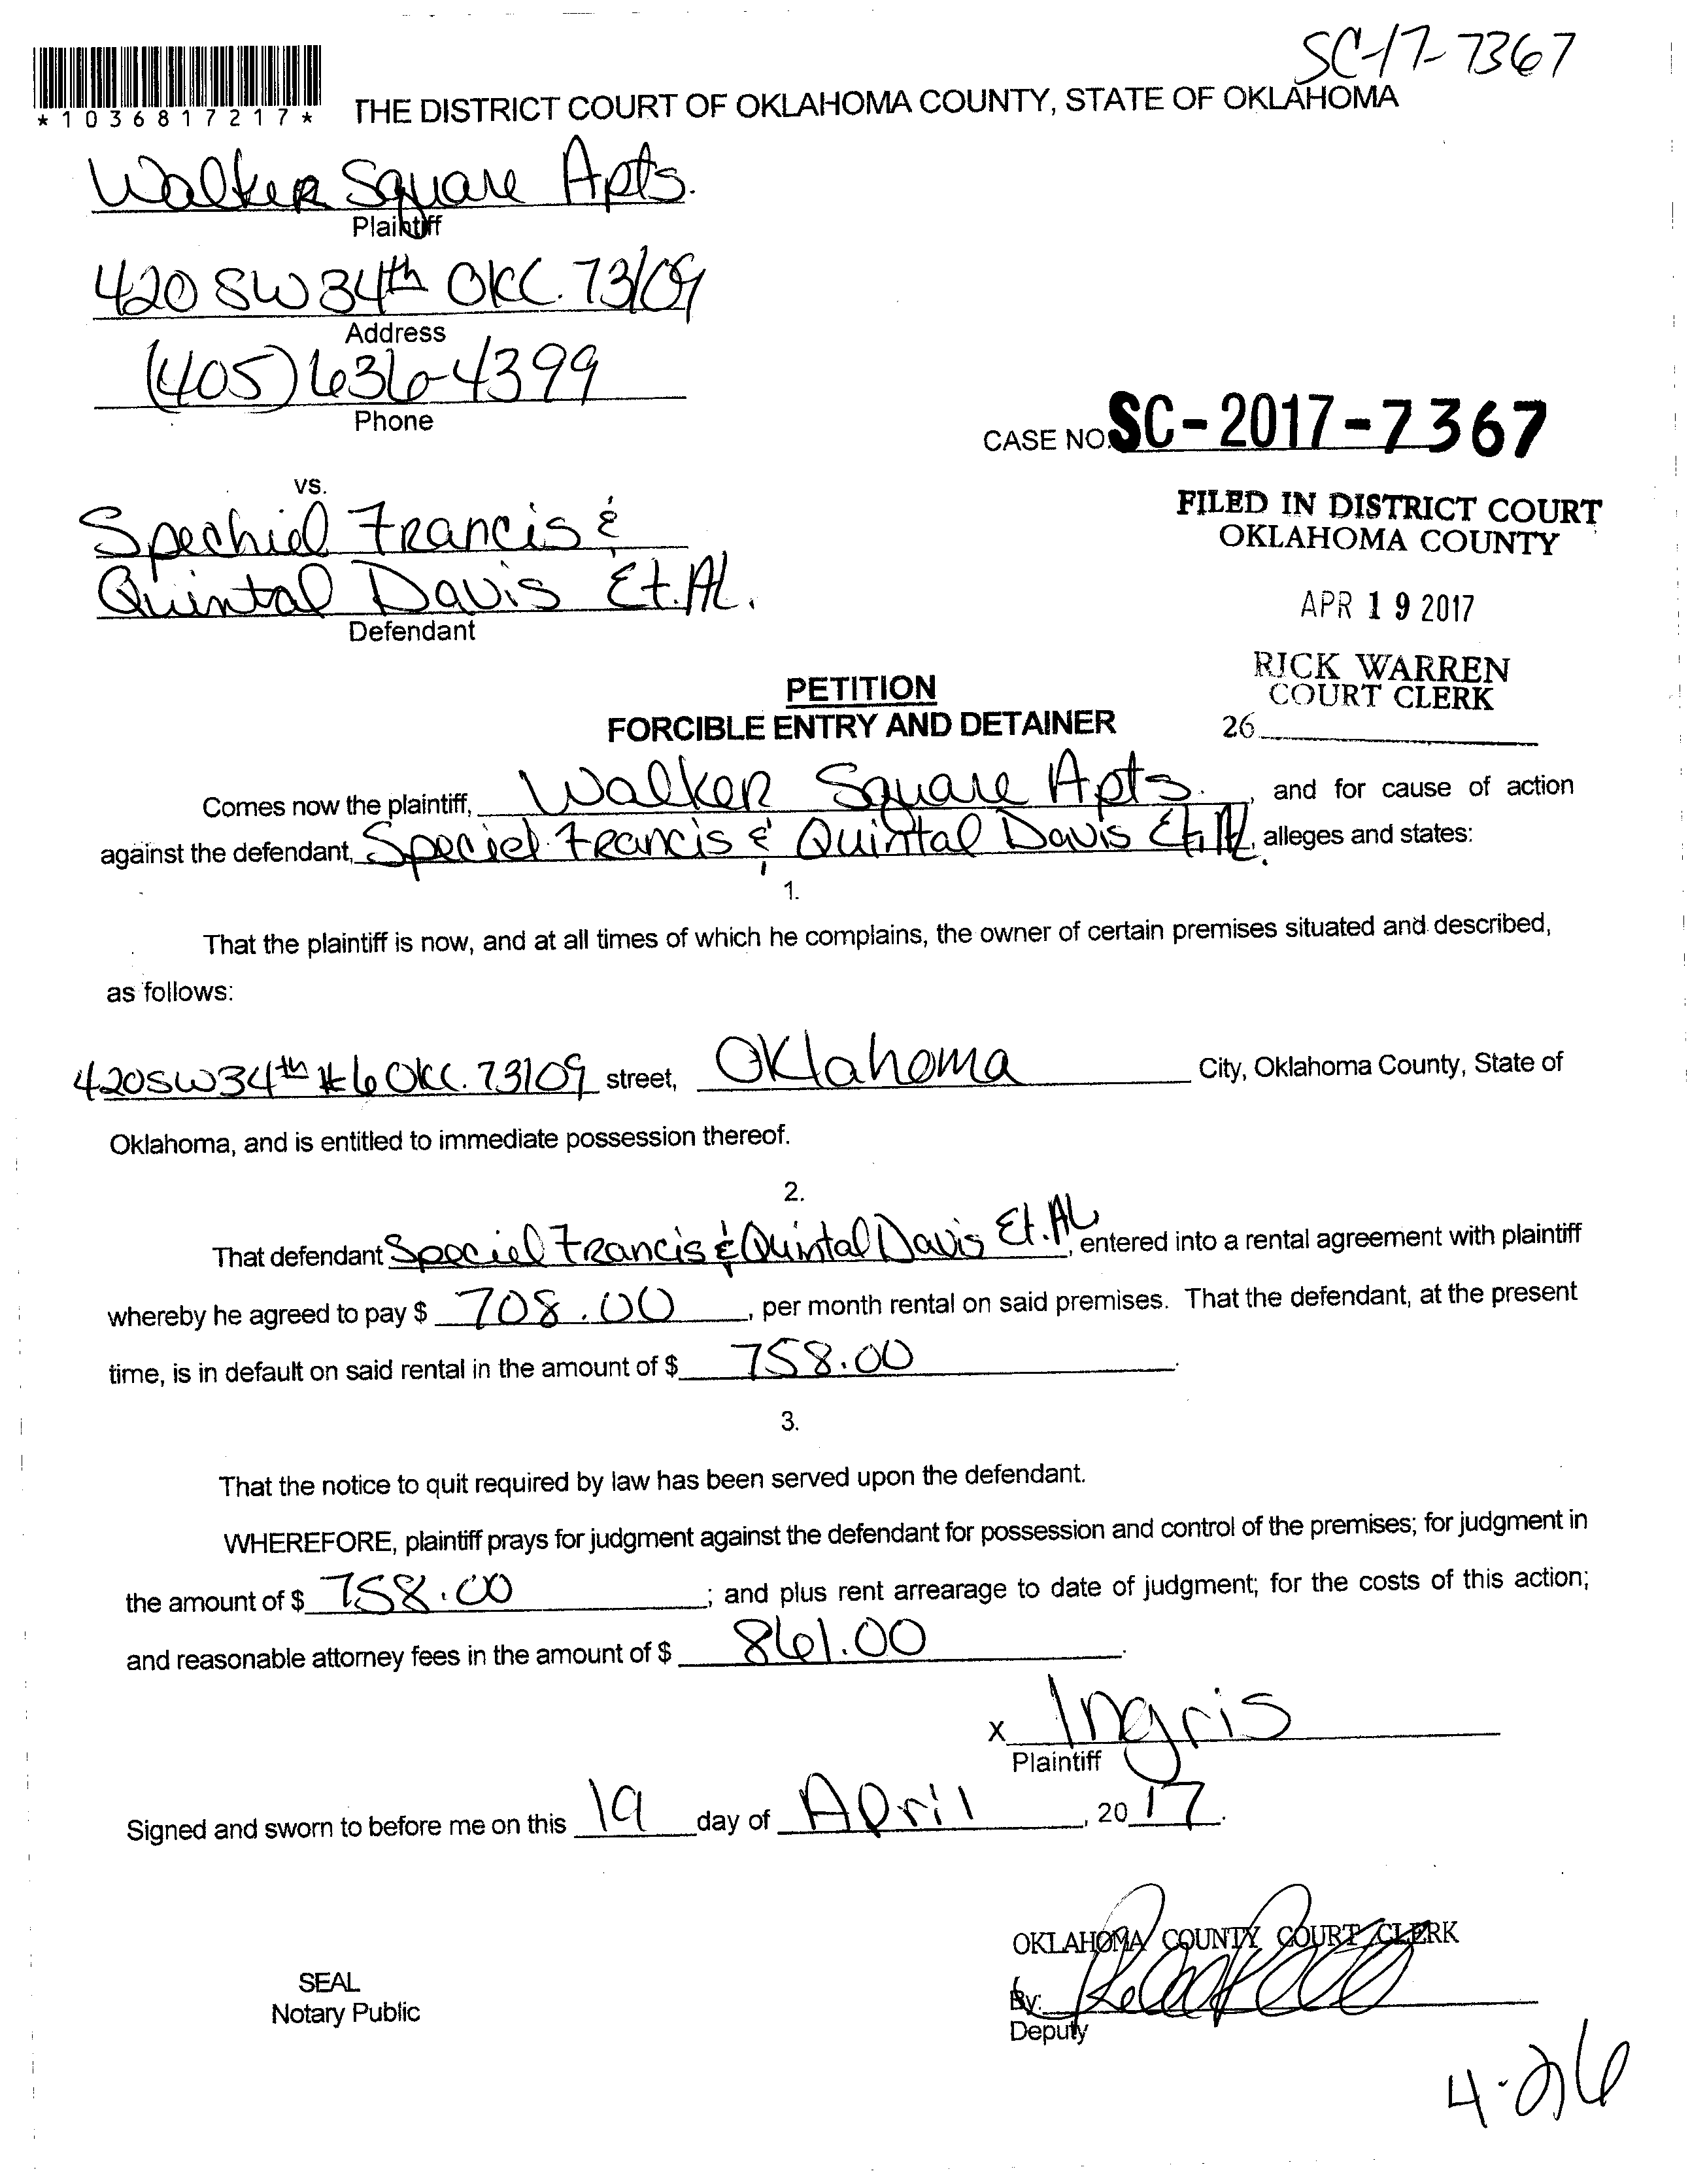 SC-17-7367
*1036817217*
THE DISTRICT COURT OF OKLAHOMA COUNTY, STATE OF OKLAHOMA
Walker Square Apts.
Plaintiff
420 SW 34th OKC. 73109
Address
(405) 636-4399
Phone
CASE NO. SC-2017-7367
vs.
Spechiel Francis &
Quintal Davis Et. Al.
Defendant
FILED IN DISTRICT COURT
OKLAHOMA COUNTY
APR 19 2017
RICK WARREN
COURT CLERK
26
PETITION
FORCIBLE ENTRY AND DETAINER
Comes now the plaintiff, Walker Square Apts., and for cause of action
against the defendant, Speciel Francis & Quintal Davis Et. Al., alleges and states:
1.
That the plaintiff is now, and at all times of which he complains, the owner of certain premises situated and described,
as follows:
420 SW 34th #6 OKC. 73109 street, Oklahoma City, Oklahoma County, State of
Oklahoma, and is entitled to immediate possession thereof.
2.
That defendant Speciel Francis & Quintal Davis Et. Al, entered into a rental agreement with plaintiff
whereby he agreed to pay $ 708.00, per month rental on said premises. That the defendant, at the present
time, is in default on said rental in the amount of $ 758.00.
3.
That the notice to quit required by law has been served upon the defendant.
WHEREFORE, plaintiff prays for judgment against the defendant for possession and control of the premises; for judgment in
the amount of $ 758.00; and plus rent arrearage to date of judgment; for the costs of this action;
and reasonable attorney fees in the amount of $ 861.00.
X Ingris
Plaintiff
Signed and sworn to before me on this 19 day of April, 2017.
OKLAHOMA COUNTY COURT CLERK
SEAL
Notary Public
By:
Deputy
4-26